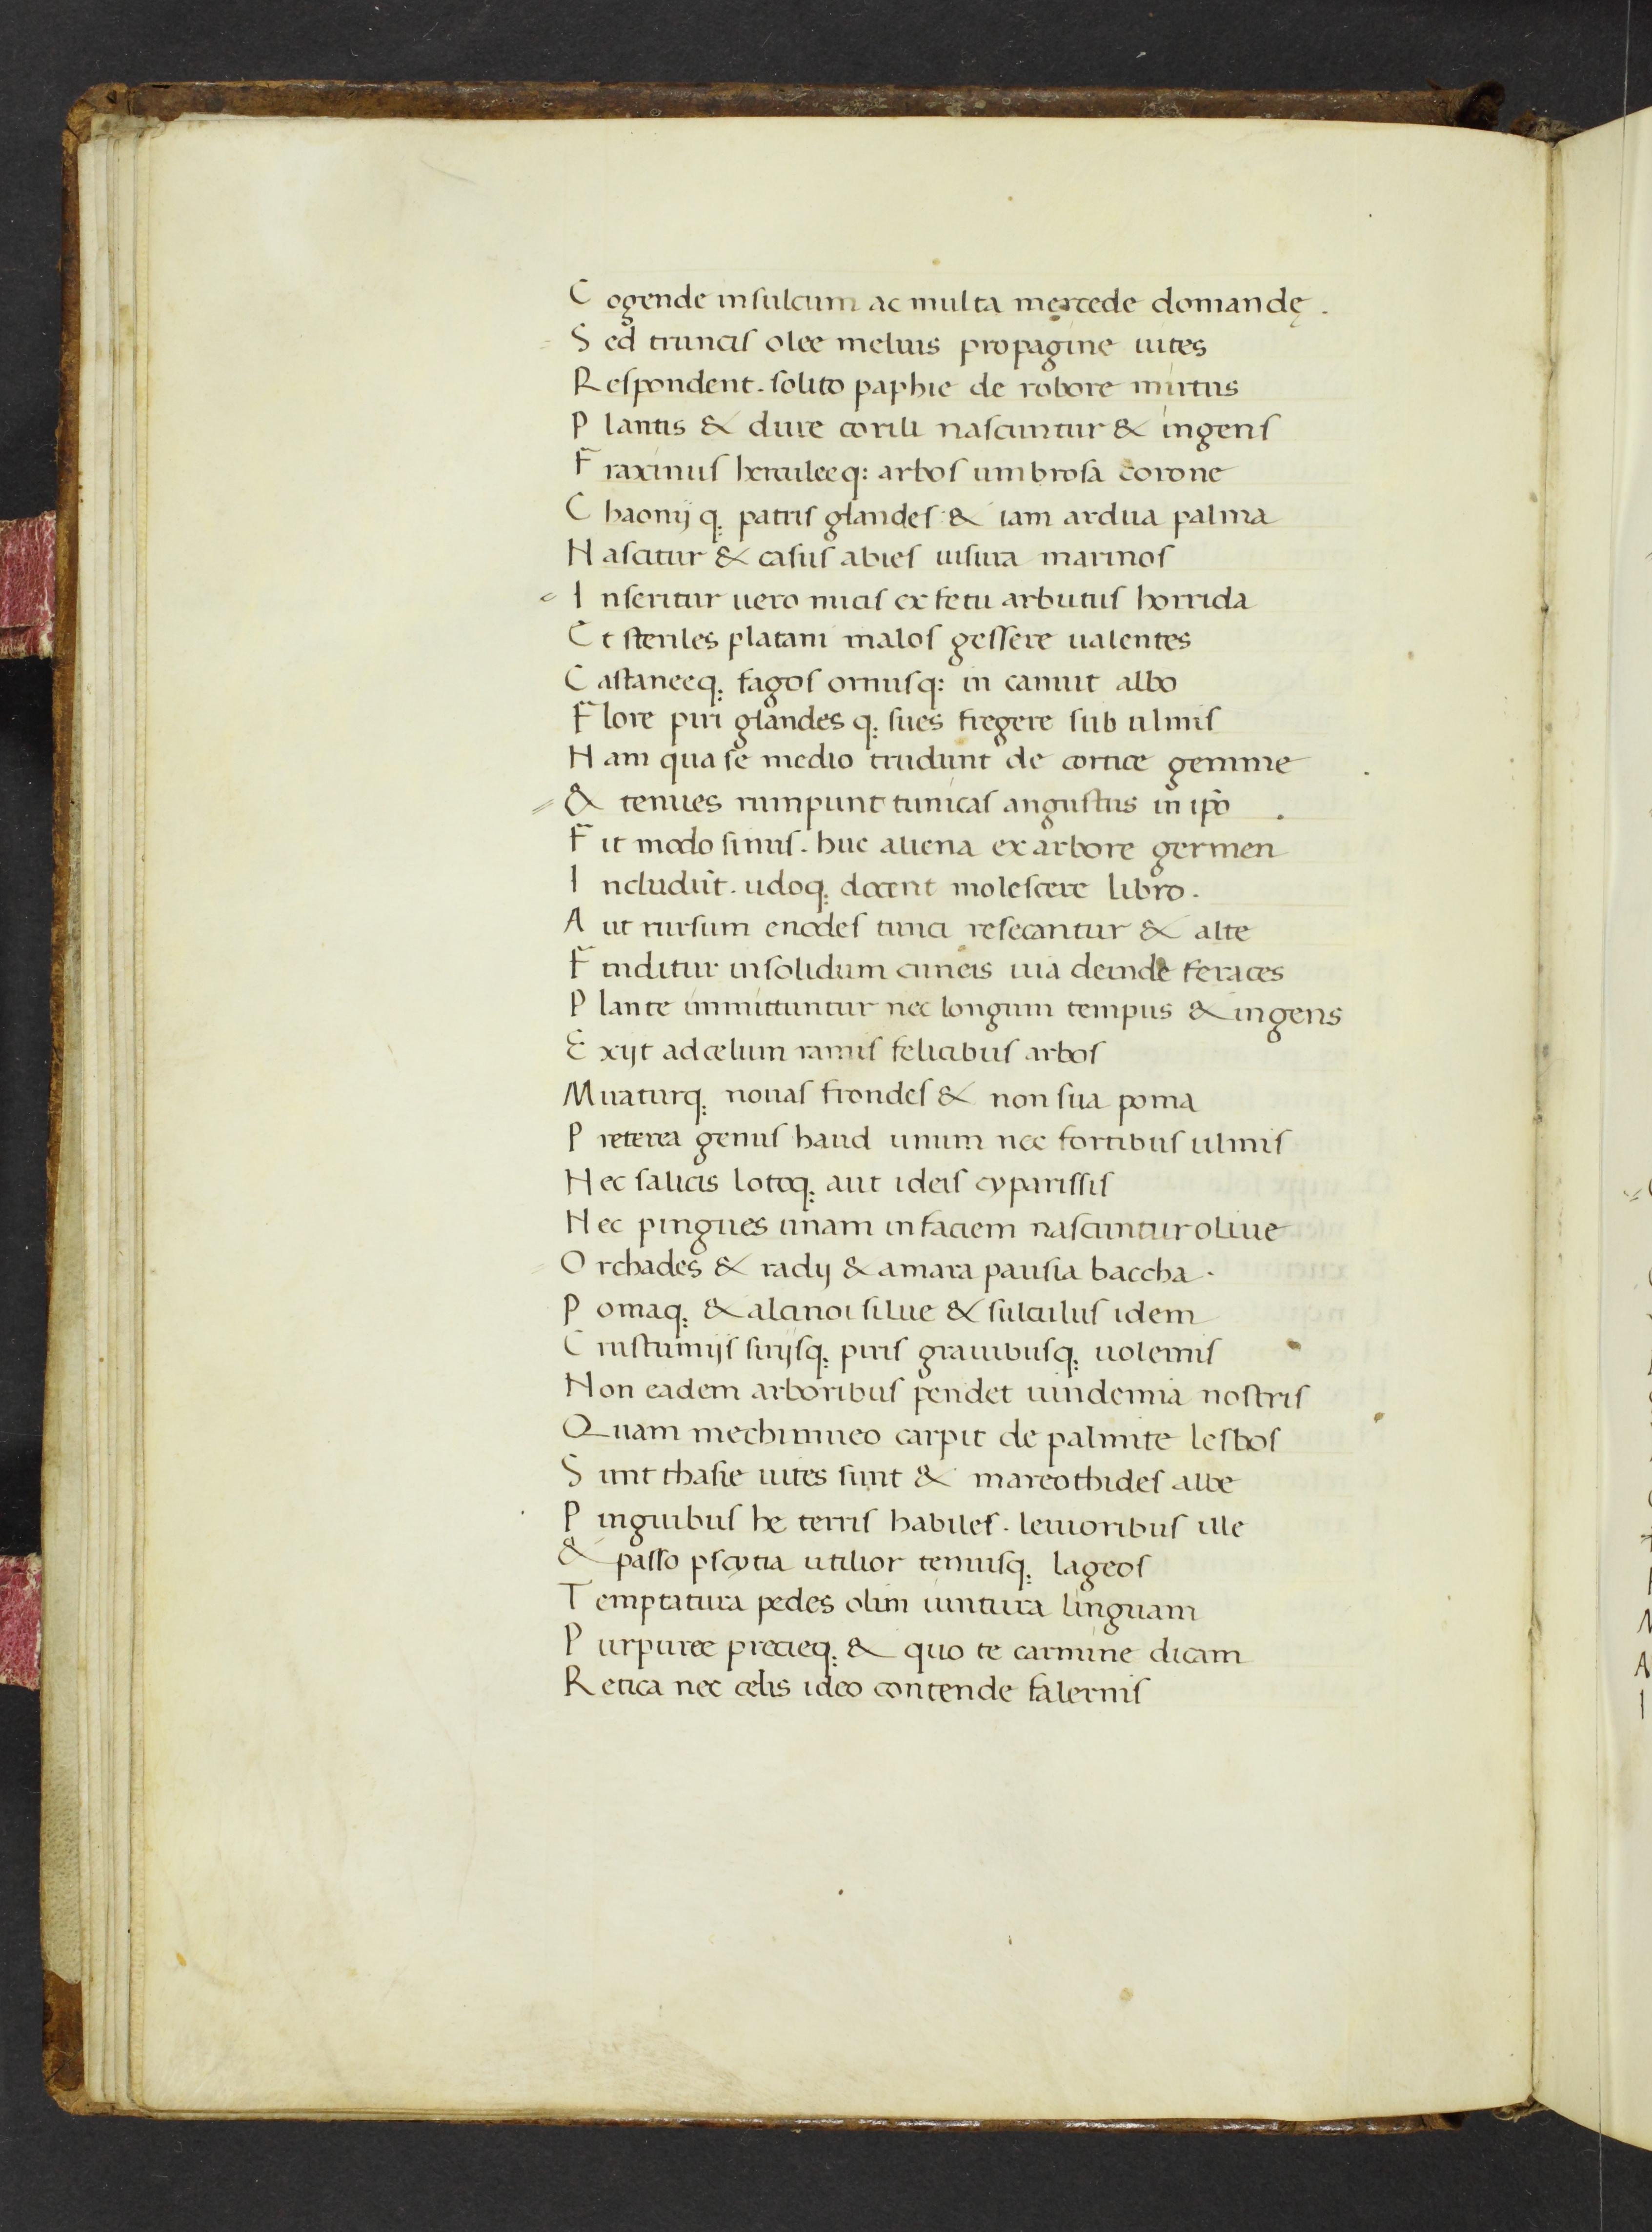 Cogende in sulcum ac multa mercede domandę.
Sed truncis olee melius propagine uites
Respondent. solito paphie de robore mirtus
Plantis & dure corili nascuntur & ingens
Fraxinus herculeeq: arbos umbrosa corone
Chaonij q; patris glandes & iam ardua palma
Nascitur & casus abies uisura marinos
Inseritur uero nucis ex fetu arbutus horrida
Et steriles platani malos gessere ualentes
Castaneeq; fagos ornusq: in canuit albo
Flore piri glandes q; sues fregere sub ulmis
Nam qua se medio trudunt de cortice gemme
& tenues rumpunt tunicas angustus in ip̄o
Fit modo sinus. huc aliena ex arbore germen
Includūt. udoq; docent molescere libro.
Aut rursum enodes tunci resecantur & alte
Finditur in solidum cuneis uia deinde feraces
Plante immittuntur nec longum tempus & ingens
Exijt ad celum ramis felicibus arbos
Muaturq; nouas frondes & non sua poma
Preterea genus haud unum nec fortibus ulmis
Nec salicis lotoq; aut ideis cyparissis
Nec pingues unam in faciem nascuntur oliue
Orchades & radij & amara pausia baccha.
Pomaq; & alcinoi silue & sulculus idem
Crustumijs sirijsq; piris grauibusq; uolemis
Non eadem arboribus pendet uindemia nostris
Quam mechimneo carpit de palmite lesbos
Sunt thasie uites sunt & mareothides albe
Pinguibus he terris habiles. leuioribus ille
& passo pscytia utilior tenuisq; lageos
Temptatura pedes olim uinctura linguam
Purpuree precieq; & quo te carmine dicam
Retica nec celis ideo contende falernis